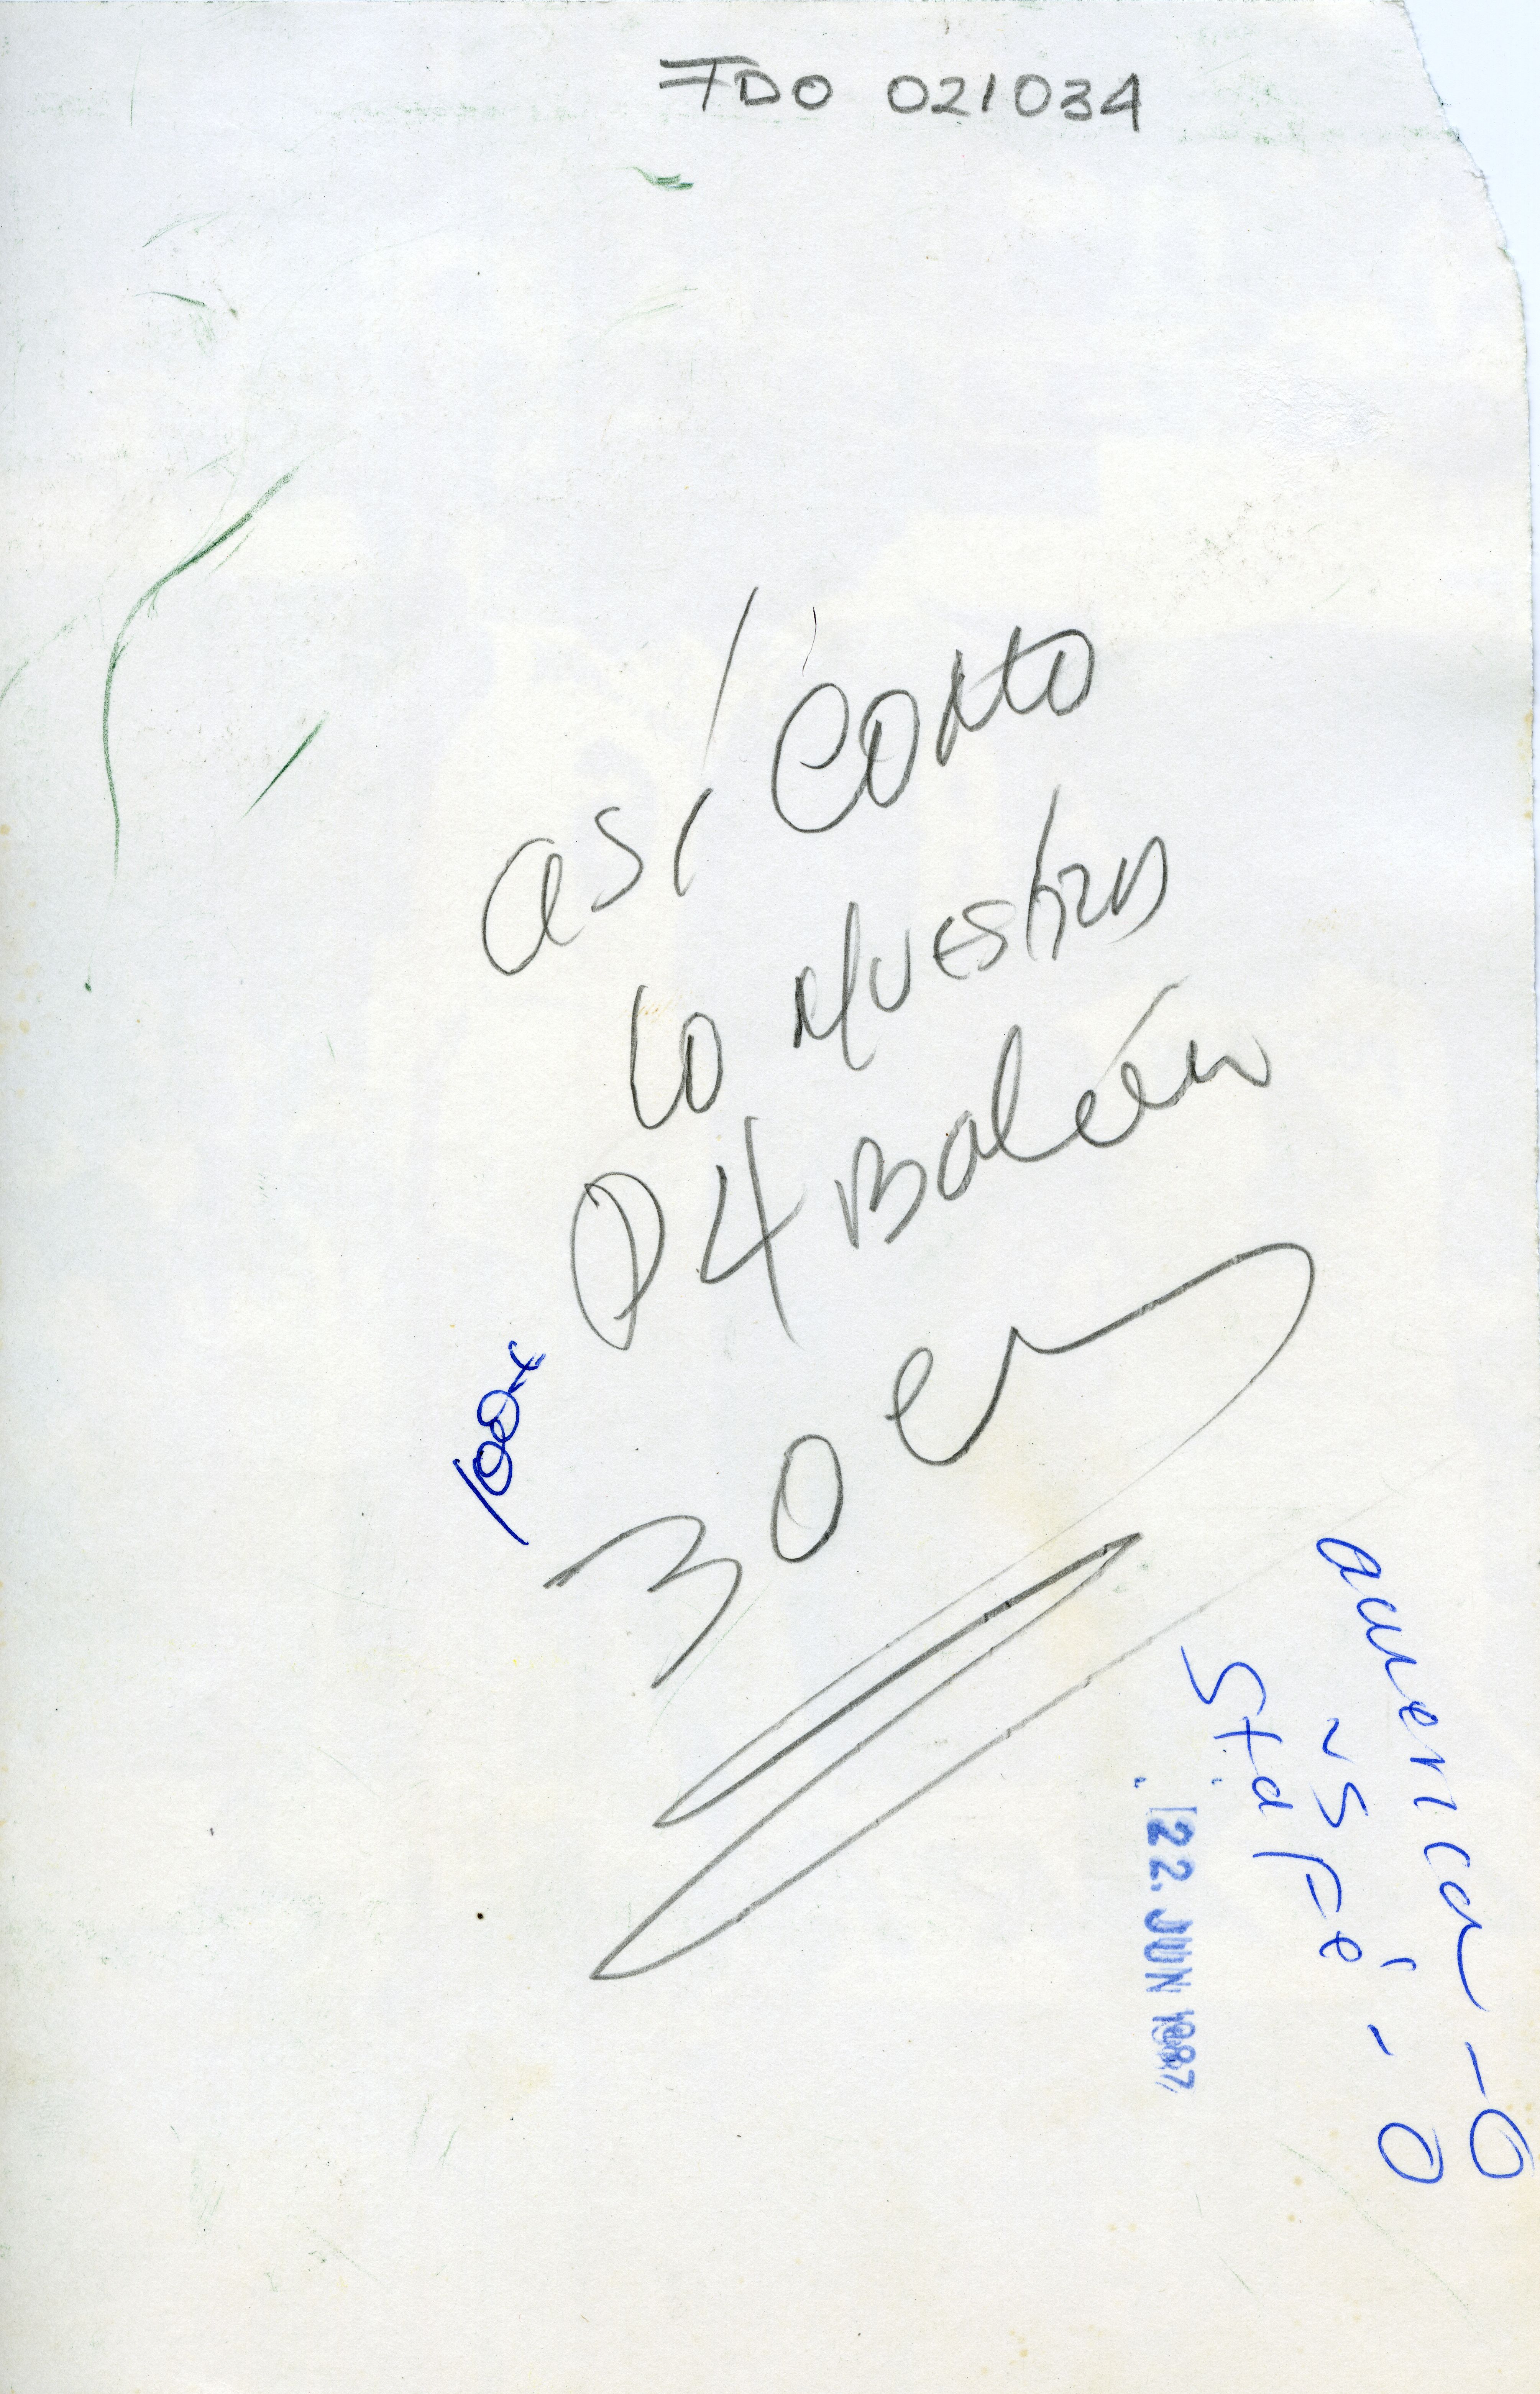 FDO 021034
así como
lo muestra
D4 Balón
30 em
100%
american - 0
vs
Sta Fé - 0
22. JUN 1987